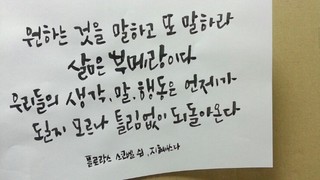 원하는 것을 말하고 또 말하라
삶은 부메랑이다
우리들의 생각, 말, 행동은 언제가
될지 모르나 틀림없이 되돌아온다
플로랑스 스코벨 쉰, 지혜